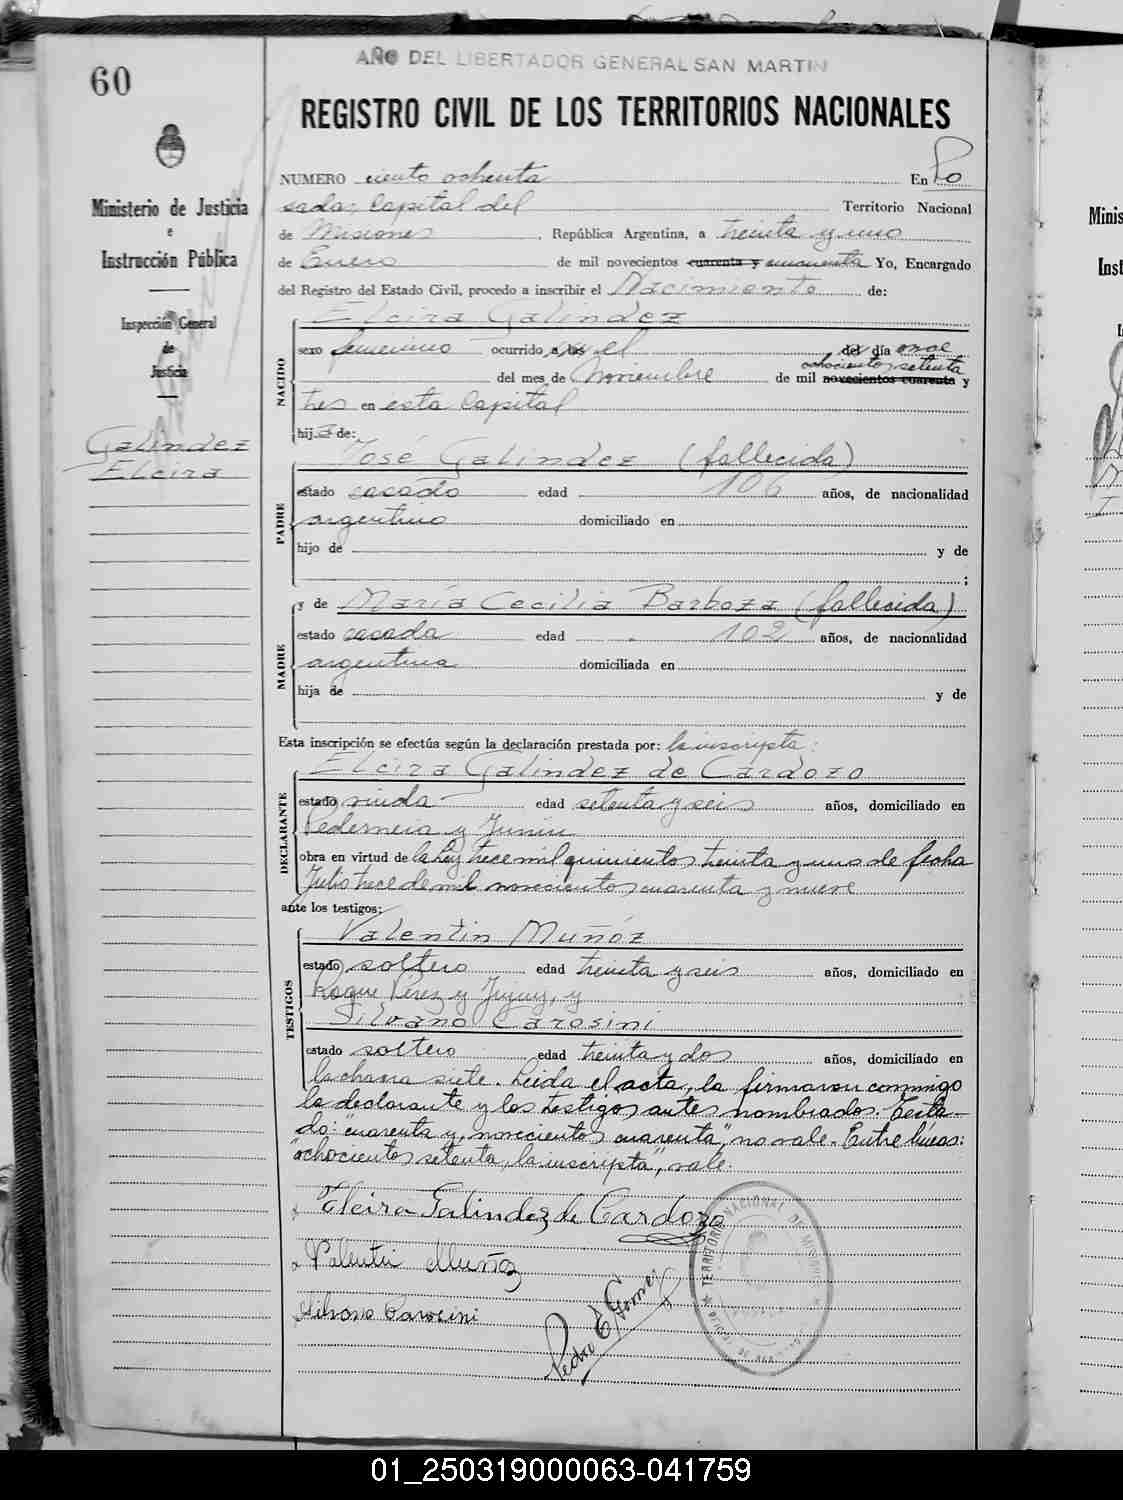 60
AÑO DEL LIBERTADOR GENERAL SAN MARTIN
REGISTRO CIVIL DE LOS TERRITORIOS NACIONALES
Ministerio de Justicia
e
Instrucción Pública
Inspección General
de
Justicia
Galindez
Elcira
NUMERO ciento ochenta En Po
sadas, Capital del Territorio Nacional
de Misiones, República Argentina, a treinta y uno
de Enero de mil novecientos cuarenta y cincuenta Yo, Encargado
del Registro del Estado Civil, procedo a inscribir el Nacimiento de:
NACIDO
Elcira Galindez
sexo femenino ocurrido a las el del día once
ochocientos setenta
del mes de Noviembre de mil novecientos cuarenta y
tres en esta Capital
hija de:
PADRE
José Galindez (fallecido)
estado casado edad 106 años, de nacionalidad
argentino domiciliado en
hijo de y de
;
MADRE
y de María Cecilia Barboza (fallecida)
estado casada edad 102 años, de nacionalidad
argentina domiciliada en
hija de y de
Esta inscripción se efectúa según la declaración prestada por: la inscripta:
DECLARANTE
Elcira Galindez de Cardozo
estado viuda edad setenta y seis años, domiciliado en
Pedernera y Junin
obra en virtud de la Ley trece mil quinientos treinta y uno de fecha
Julio trece de mil novecientos cuarenta y nueve
ante los testigos:
TESTIGOS
Valentin Muñóz
estado soltero edad treinta y seis años, domiciliado en
Roque Perez y Jujuy, y
Silvano Carosini
estado soltero edad treinta y dos años, domiciliado en
la chacra siete. Leida el acta, la firmaron conmigo
la declarante y los testigos antes nombrados. Testa-
do: "cuarenta y, novecientos cuarenta", no vale. Entre líneas:
"ochocientos setenta, la inscripta", vale.
Elcira Galindez de Cardozo
Valentin Muñoz
Silvano Carosini
Pedro E. Gomez
TERRITORIO NACIONAL DE MISIONES
01_250319000063-041759